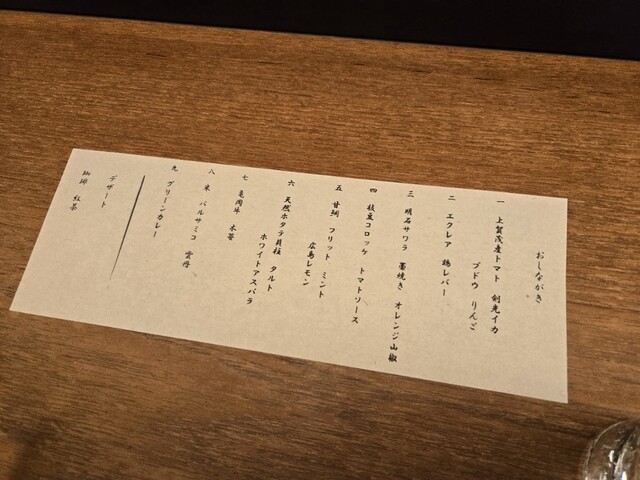 おしながき
一 上賀茂産トマト 剣先イカ
ブドウ りんご
二 エクレア 鶏レバー
三 明石サワラ 藁焼き オレンジ山椒
四 枝豆コロッケ トマトソース
五 甘鯛 フリット ミント
広島レモン
六 天然ホタテ貝柱 タルト
ホワイトアスパラ
七 亀岡牛 木苺
八 米 バルサミコ 雲丹
九 グリーンカレー
デザート
珈琲 紅茶